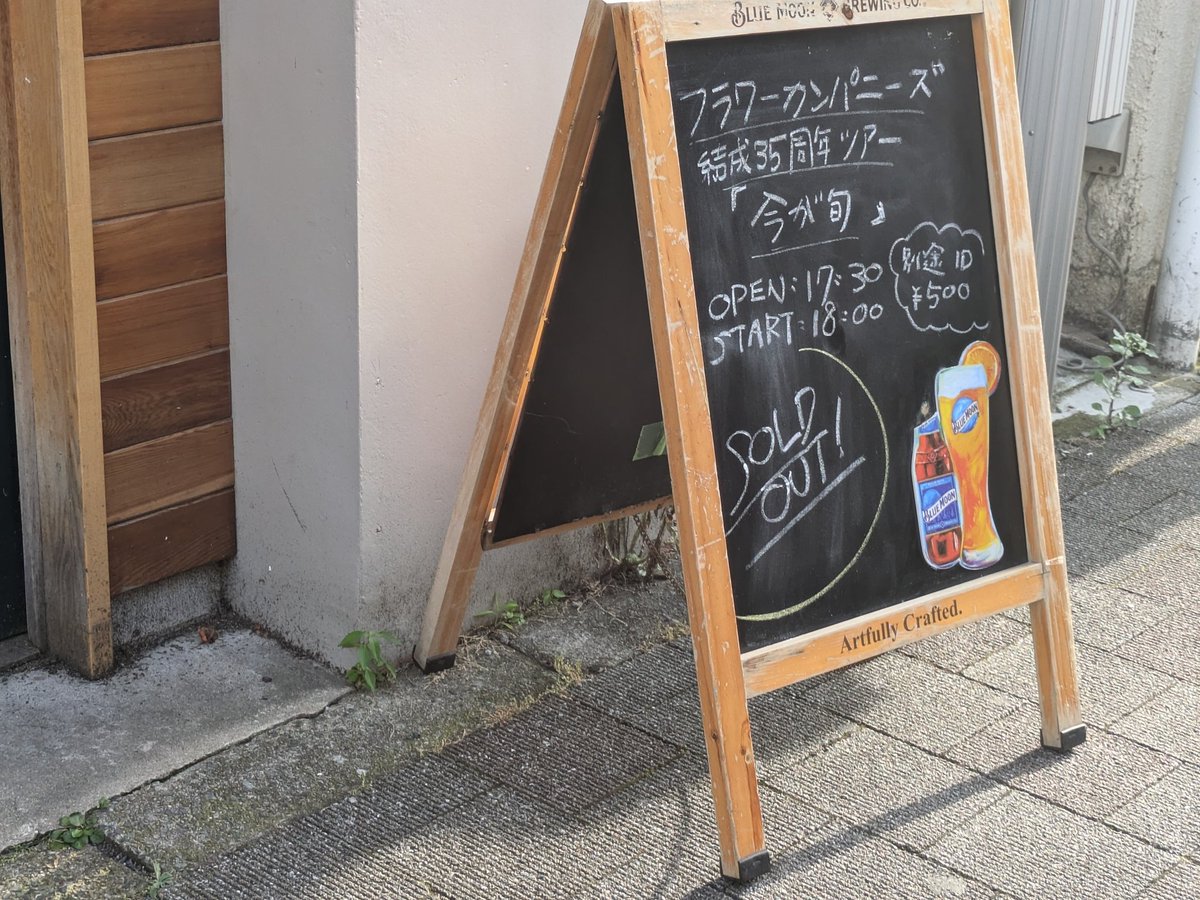 BLUE MOON BREWING CO.
フラワーカンパニーズ
結成35周年ツアー
『今が旬』
OPEN:17:30
START:18:00
別途1D
¥500
SOLD
OUT!
BLUE MOON
BLUE MOON
Artfully Crafted.